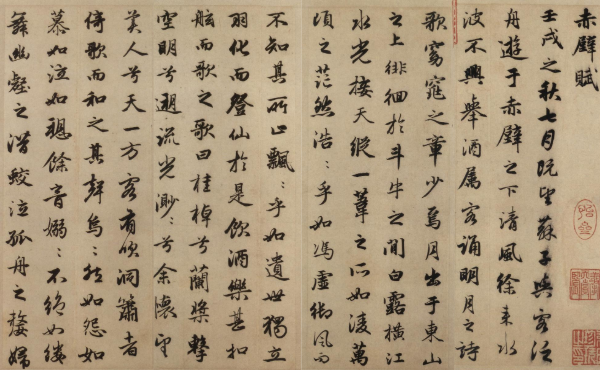 赤壁賦
壬戌之秋七月既望蘇子與客泛
舟遊于赤壁之下清風徐来水
波不興舉酒属客誦明月之詩
歌窈窕之章少焉月出于東山
之上徘徊於斗牛之間白露橫江
水光接天縱一葦之所如凌萬
頃之茫然浩〻乎如馮虛御風而
不知其所止飄〻乎如遺世獨立
羽化而登仙於是飲酒樂甚扣
舷而歌之歌曰桂棹兮蘭槳擊
空明兮遡流光渺〻兮余懷望
美人兮天一方客有吹洞簫者
倚歌而和之其聲烏〻然如怨如
慕如泣如訴餘音嫋〻不絶如縷
舞幽壑之潛蛟泣孤舟之嫠婦